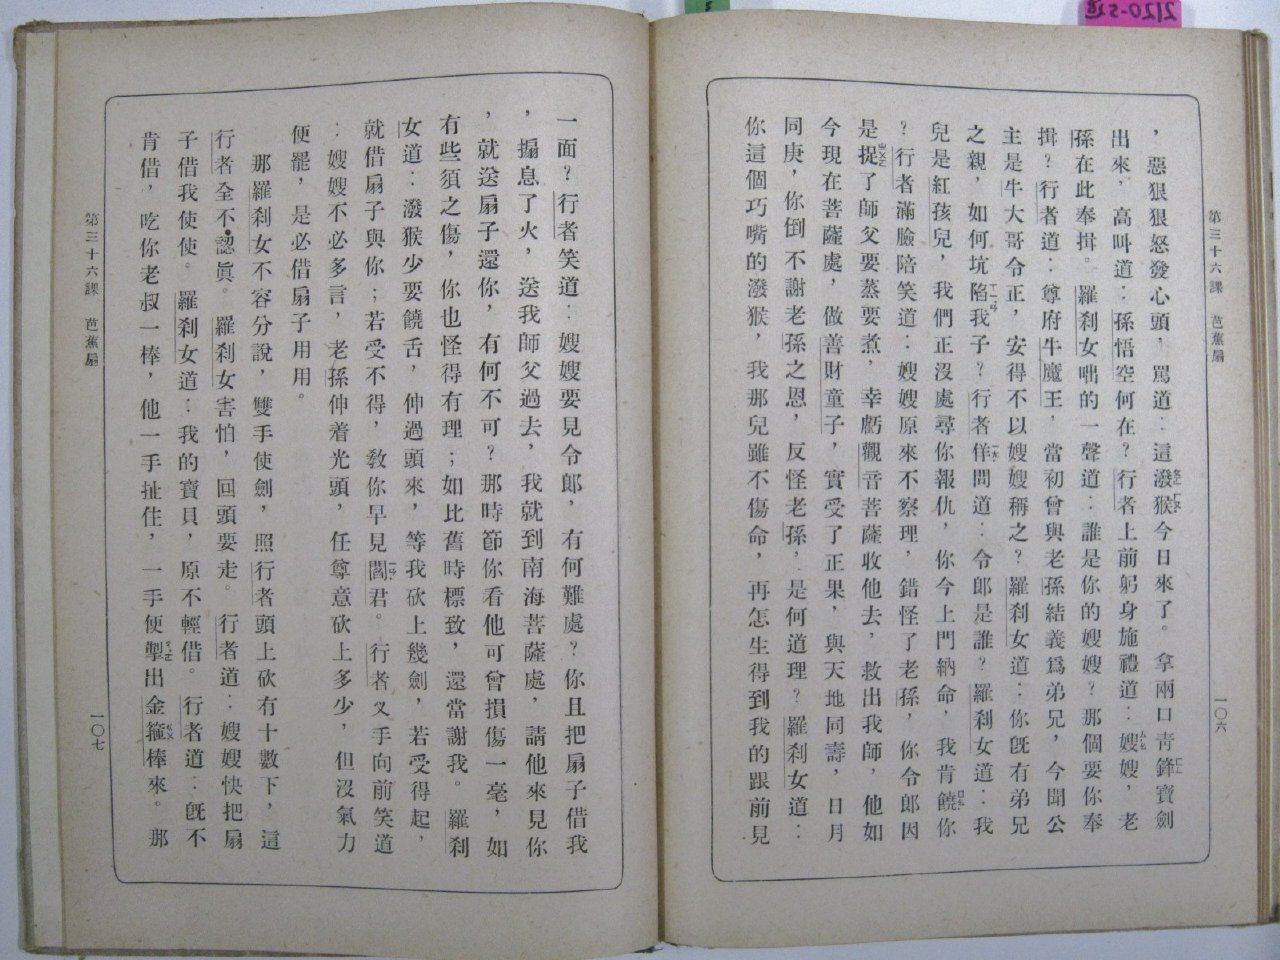 2120-5道
第三十六課　芭蕉扇
一〇六
，惡狠狠怒發心頭，罵道：這潑猴今日來了。拿兩口青鋒寶劍
出來，高叫道：孫悟空何在？行者上前躬身施禮道：嫂嫂，老
孫在此奉揖。羅刹女咄的一聲道：誰是你的嫂嫂？那個要你奉
揖？行者道：尊府牛魔王，當初曾與老孫結義爲弟兄，今聞公
主是牛大哥令正，安得不以嫂嫂稱之？羅刹女道：你旣有弟兄
之親，如何坑陷我子？行者佯問道：令郎是誰？羅刹女道：我
兒是紅孩兒，我們正沒處尋你報仇，你今上門納命，我肯饒你
？行者滿臉陪笑道：嫂嫂原來不察理，錯怪了老孫，你令郎因
是捉了師父要蒸要煮，幸虧觀音菩薩收他去，救出我師，他如
今現在菩薩處，做善財童子，實受了正果，與天地同壽，日月
同庚，你倒不謝老孫之恩，反怪老孫，是何道理？羅刹女道：
你這個巧嘴的潑猴，我那兒雖不傷命，再怎生得到我的跟前見
一面？行者笑道：嫂嫂要見令郎，有何難處？你且把扇子借我
，搧息了火，送我師父過去，我就到南海菩薩處，請他來見你
，就送扇子還你，有何不可？那時節你看他可曾損傷一毫，如
有些須之傷，你也怪得有理；如比舊時標致，還當謝我。羅刹
女道：潑猴少要饒舌，伸過頭來，等我砍上幾劍，若受得起，
就借扇子與你；若受不得，敎你早見閻君。行者叉手向前笑道
：嫂嫂不必多言，老孫伸着光頭，任尊意砍上多少，但沒氣力
便罷，是必借扇子用用。
那羅刹女不容分說，雙手使劍，照行者頭上砍有十數下，這
行者全不認眞。羅刹女害怕，回頭要走。行者道：嫂嫂快把扇
子借我使使。羅刹女道：我的寶貝，原不輕借。行者道：旣不
肯借，吃你老叔一棒，他一手扯住，一手便掣出金箍棒來。那
第三十六課　芭蕉扇
一〇七